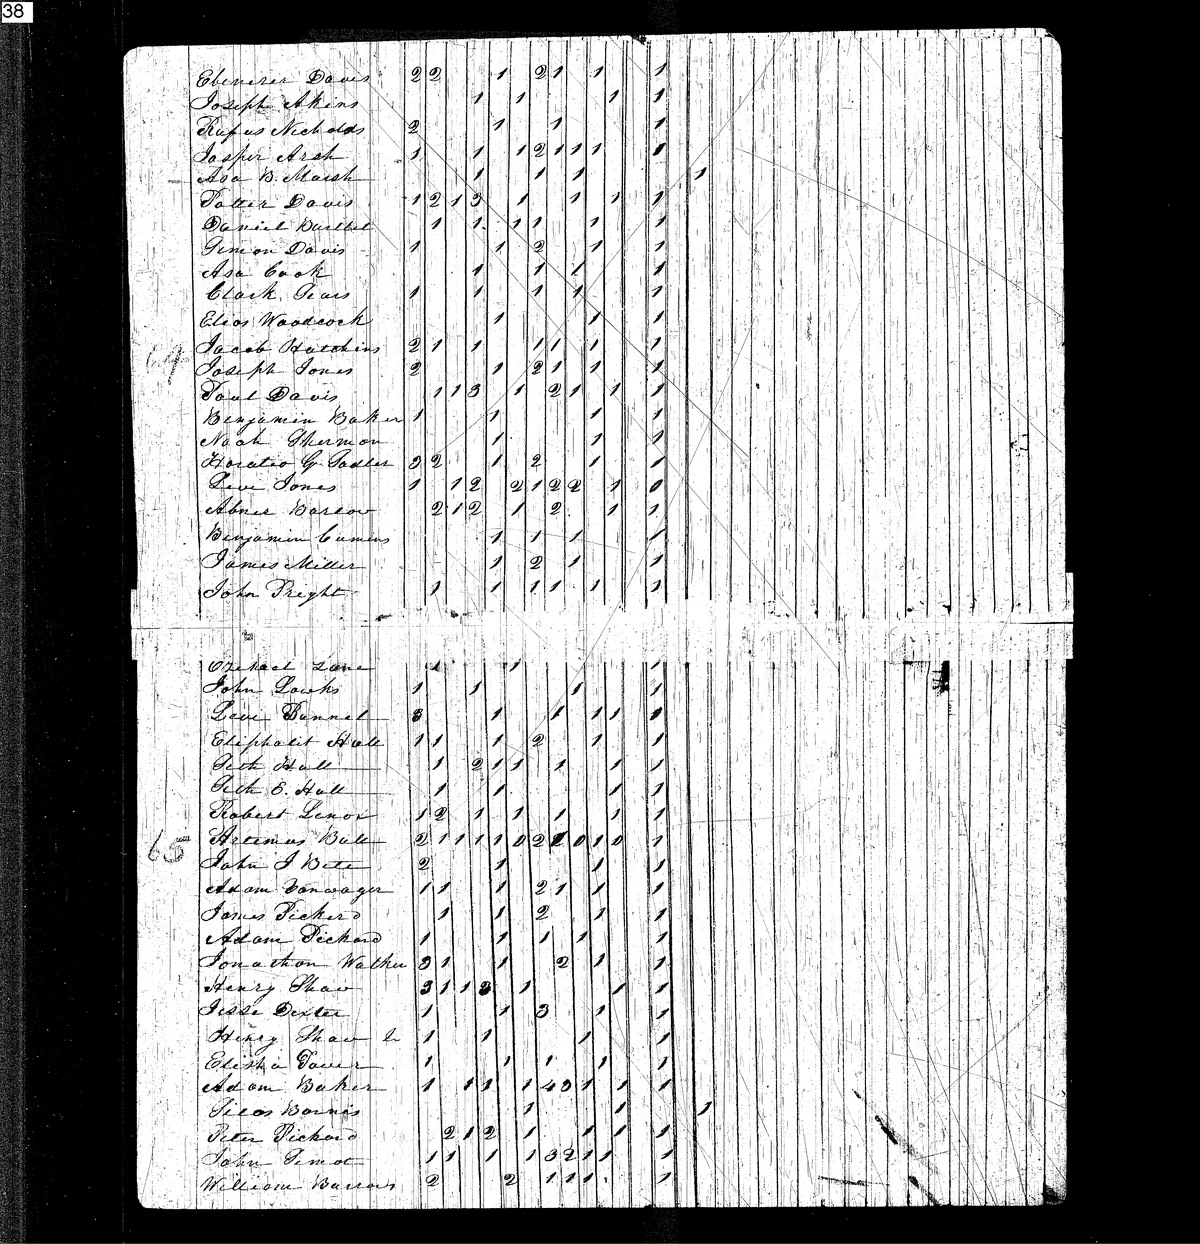 38
Ebenezer Davis 2 2 1 2 1 1 1
Joseph Akins 1 1 1 1
Rufus Nichols 2 1 1 1
Jasper Arsh 1 1 1 2 1 1 1
Asa B. Marsh 1 1 1 1
Potter Davis 1 2 1 3 1 1 1 1
Daniel 1 1 1 1 1 1
Simeon Davis 1 1 2 1 1
Asa Cook 1 1 1 1
Clark Sears 1 1 1 1 1
Elias Woodcock 1 1 1
64 Jacob Hutchins 2 1 1 1 1 1 1
Joseph Jones 2 1 2 1 1 1
Paul Davis 1 1 3 1 2 1 1 1
Benjamin Baker 1 1 1 1
Noah Sherman 1 1 1
Horatio G. 3 2 1 2 1 1
Levi Jones 1 1 2 2 1 2 2 1 0
Abner Barlow 2 1 2 1 2 1 1
Benjamin 1 1 1 1
James Miller 1 2 1 1
John 1 1 1 1 1 1
Lane 1 1 1
John 1 1 1 1
Levi Bunnel 3 1 1 1 1
Eliphalit Hall 1 1 1 2 1 1
Seth Hall 1 2 1 1 1 1 1
Seth E. Hall 1 1 1 1
Robert Lenox 1 2 1 1 1 1 1
65 Artemas Ball 2 1 1 1 1 0 2 0 1 0 1
John J 2 1 1 1
Adam Vanwager 1 1 1 2 1 1 1
James Pickerd 1 1 2 1 1
Adam Pickard 1 1 1 1 1
Jonathan Walker 3 1 1 2 1 1
Henry Shaw 3 1 1 3 1 1 1
Jesse Dexter 1 1 3 1 1
Henry Shaw Jr 1 1 1 1
Elisha 1 1 1 1 1
Adam Baker 1 1 1 1 4 3 1 1 1
Silas Barnes 1 1 1
Peter Pickard 2 1 2 1 1 1 1
John 1 1 1 1 3 2 1 1 1
William Burrows 2 2 1 1 1 1